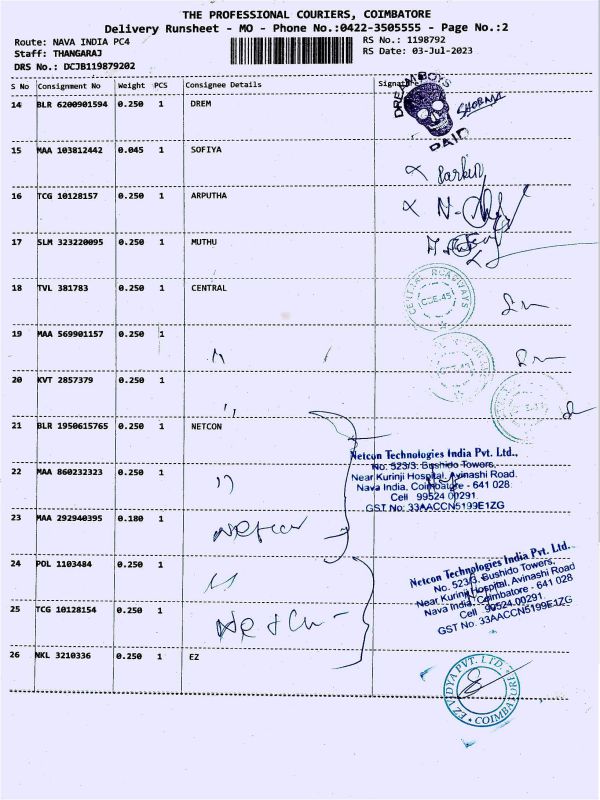 THE PROFESSIONAL COURIERS, COIMBATORE
Delivery Runsheet - MO - Phone No.:0422-3505555 - Page No.:2
Route: NAVA INDIA PC4
RS No.: 1198792
Staff: THANGARAJ
RS Date: 03-Jul-2023
DRS No.: DCJB119879202
S No Consignment No Weight PCS Consignee Details Signature
14 BLR 6200901594 0.250 1 DREM
DREAM BOYS
PAID
15 MAA 103812442 0.045 1 SOFIYA
16 TCG 10128157 0.250 1 ARPUTHA
17 SLM 323220095 0.250 1 MUTHU
18 TVL 381783 0.250 1 CENTRAL
CBE-45
19 MAA 569901157 0.250 1
20 KVT 2857379 0.250 1
21 BLR 1950615765 0.250 1 NETCON
Netcon Technologies India Pvt. Ltd.,
No. 523/3. Bushido Towers,
Near Kurinji Hospital, Avinashi Road.
Nava India, Coimbatore - 641 028.
Cell 99524 00291.
GST No: 33AACCN5199E1ZG
22 MAA 860232323 0.250 1 〃
23 MAA 292940395 0.180 1 Netcon
24 POL 1103484 0.250 1 〃
Netcon Technologies India Pvt. Ltd.
No. 523/3. Bushido Towers,
Near Kurinji Hospital, Avinashi Road
Nava India, Coimbatore - 641 028
Cell 99524.00291.
GST No: 33AACCN5199E1ZG
25 TCG 10128154 0.250 1 Netcon
26 NKL 3210336 0.250 1 EZ
EZ VIDYA PVT. LTD.